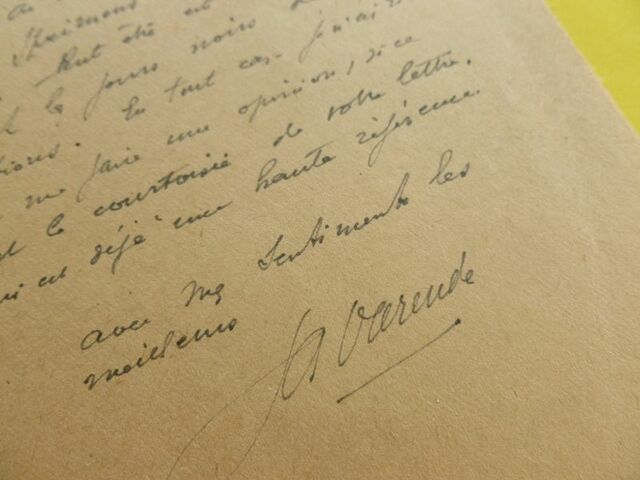 Spécimens
Peut être est
le jours noirs de
tions. En tout cas j'aurai
me faire une opinion, si ce
et la courtoisie de votre lettre.
qui est déjà une haute référence.
avec mes sentiments les
meilleurs
La Varende